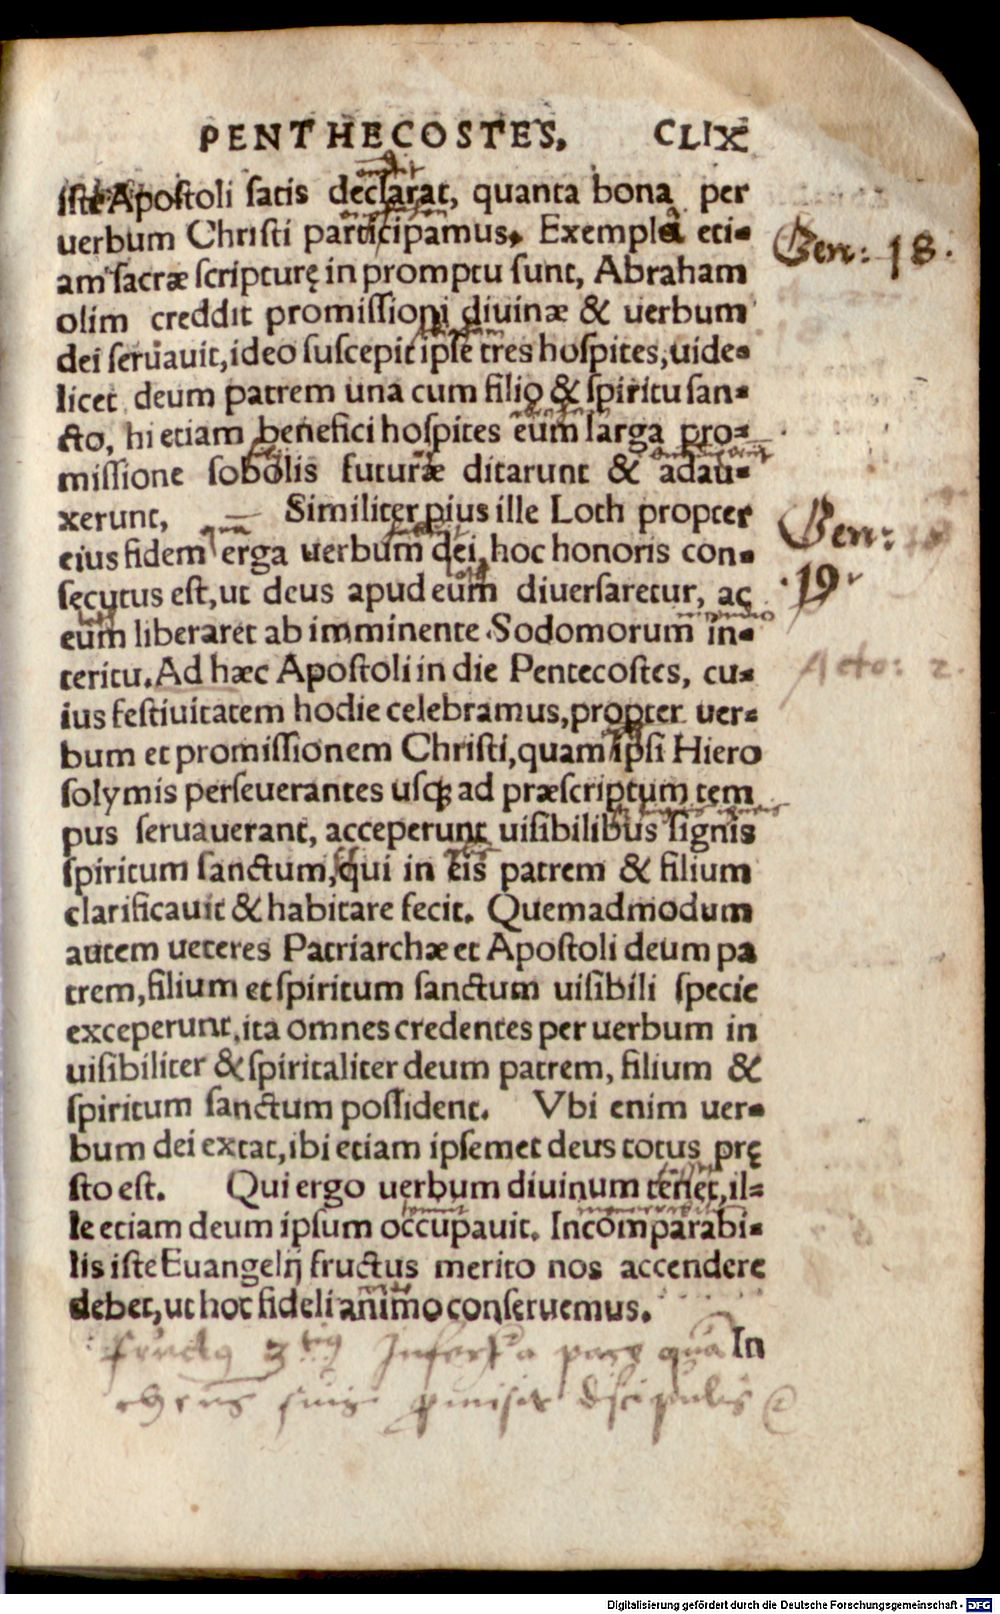 PENTHECOSTES. CLIX
iste Apostoli satis declarat, quanta bona per
uerbum Christi participamus. Exempla eti-
am sacræ scripturę in promptu sunt, Abraham
olim creddit promissioni diuinæ & uerbum
dei seruauit, ideo suscepit ipse tres hospites, uide-
licet deum patrem una cum filio & spiritu san-
cto, hi etiam benefici hospites eum larga pro-
missione sobolis futuræ ditarunt & adau-
xerunt, Similiter pius ille Loth propter
eius fidem erga uerbum dei, hoc honoris con-
secutus est, ut deus apud eum diuersaretur, ac
eum liberaret ab imminente Sodomorum in-
teritu. Ad hæc Apostoli in die Pentecostes, cu-
ius festiuitatem hodie celebramus, propter uer-
bum et promissionem Christi, quam ipsi Hiero
solymis perseuerantes usq; ad præscriptum tem
pus seruauerant, acceperunt uisibilibus signis
spiritum sanctum, qui in eis patrem & filium
clarificauit & habitare fecit. Quemadmodum
autem ueteres Patriarchæ et Apostoli deum pa
trem, filium et spiritum sanctum uisibili specie
exceperunt, ita omnes credentes per uerbum in
uisibiliter & spiritaliter deum patrem, filium &
spiritum sanctum possident. Vbi enim uer-
bum dei extat, ibi etiam ipsemet deus totus prę
sto est. Qui ergo uerbum diuinum tenet, il-
le etiam deum ipsum occupauit. Incomparabi-
lis iste Euangelij fructus merito nos accendere
debet, ut hoc fideli animo conseruemus.
In
Gen: 18.
Gen:
19
Acto: 2.
pace qua
suis discipulis
Digitalisierung gefördert durch die Deutsche Forschungsgemeinschaft - DFG